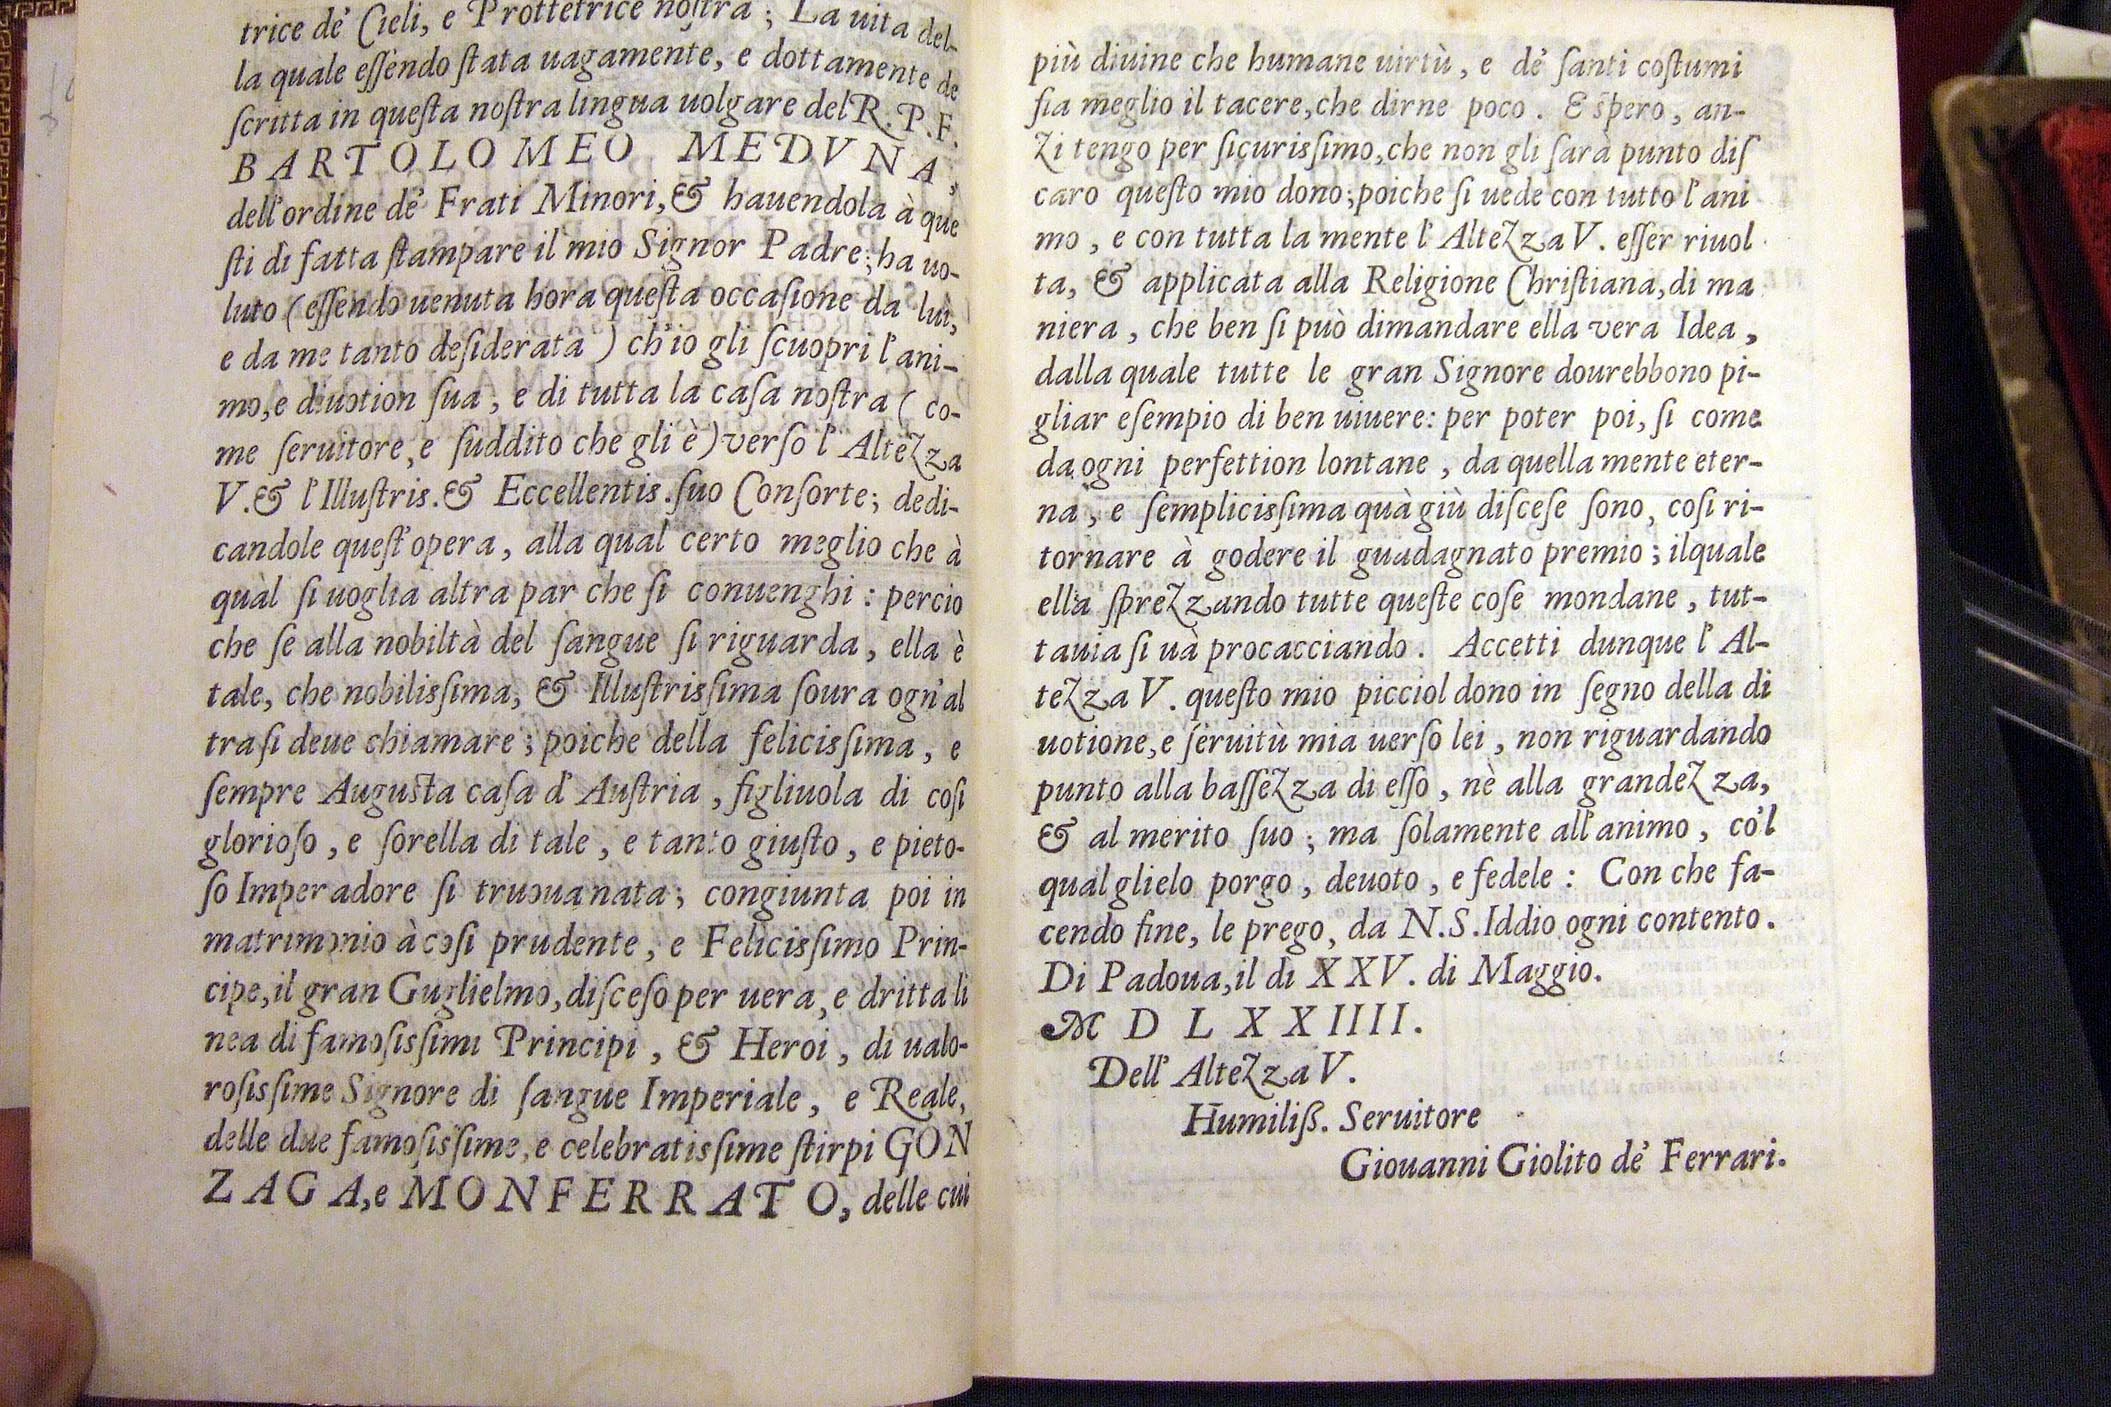 trice de' Cieli, e Prottetrice noſtra; La uita del-
la quale eſſendo ſtata uagamente, e dottamente de
ſcritta in queſta noſtra lingua uolgare del R. P. F.
BARTOLOMEO MEDVNA,
dell'ordine de' Frati Minori, & hauendola à que
ſti dì fatta ſtampare il mio Signor Padre; ha uo-
luto (eſſendo uenuta hora queſta occaſione da lui,
e da me tanto deſiderata) ch'io gli ſcuopri l'ani-
mo, e diuotion ſua, e di tutta la caſa noſtra (co-
me ſeruitore, e ſuddito che gli è) verſo l'Altezza
V. & l'Illuſtris. & Eccellentis. ſuo Conſorte; dedi-
candole queſt'opera, alla qual certo meglio che à
qual ſi uoglia altra par che ſi conuenghi: percio
che ſe alla nobiltà del ſangue ſi riguarda, ella è
tale, che nobilisſima, & Illuſtrisſima ſoura ogn'al
tra ſi deue chiamare; poiche della felicisſima, e
ſempre Auguſta caſa d'Auſtria, figliuola di coſi
glorioſo, e ſorella di tale, e tanto giuſto, e pieto-
ſo Imperadore ſi truoua nata; congiunta poi in
matrimonio à coſi prudente, e Felicisſimo Prin-
cipe, il gran Guglielmo, diſceſo per uera, e dritta li
nea di famoſisſimi Principi, & Heroi, di ualo-
roſisſime Signore di ſangue Imperiale, e Reale,
delle due famoſisſime, e celebratisſime ſtirpi GON
ZAGA, e MONFERRATO, delle cui
più diuine che humane uirtù, e de' ſanti coſtumi
ſia meglio il tacere, che dirne poco. E ſpero, an-
zi tengo per ſicurisſimo, che non gli ſarà punto diſ
caro queſto mio dono; poiche ſi uede con tutto l'ani
mo, e con tutta la mente l'Altezza V. eſſer riuol
ta, & applicata alla Religione Chriſtiana, di ma
niera, che ben ſi può dimandare ella vera Idea,
dalla quale tutte le gran Signore dourebbono pi-
gliar eſempio di ben uiuere: per poter poi, ſi come
da ogni perfettion lontane, da quella mente eter-
na, e ſemplicisſima quà giù diſceſe ſono, coſi ri-
tornare à godere il guadagnato premio; ilquale
ella ſprezzando tutte queſte coſe mondane, tut-
tauia ſi uà procacciando. Accetti dunque l'Al-
tezza V. queſto mio picciol dono in ſegno della di
uotione, e ſeruitù mia uerſo lei, non riguardando
punto alla baſſezza di eſſo, nè alla grandezza,
& al merito ſuo; ma ſolamente all'animo, co'l
qual glielo porgo, deuoto, e fedele: Con che fa-
cendo fine, le prego, da N. S. Iddio ogni contento.
Di Padoua, il dì XXV. di Maggio.
MDLXXIIII.
Dell'Altezza V.
Humiliß. Seruitore
Giouanni Giolito de' Ferrari.